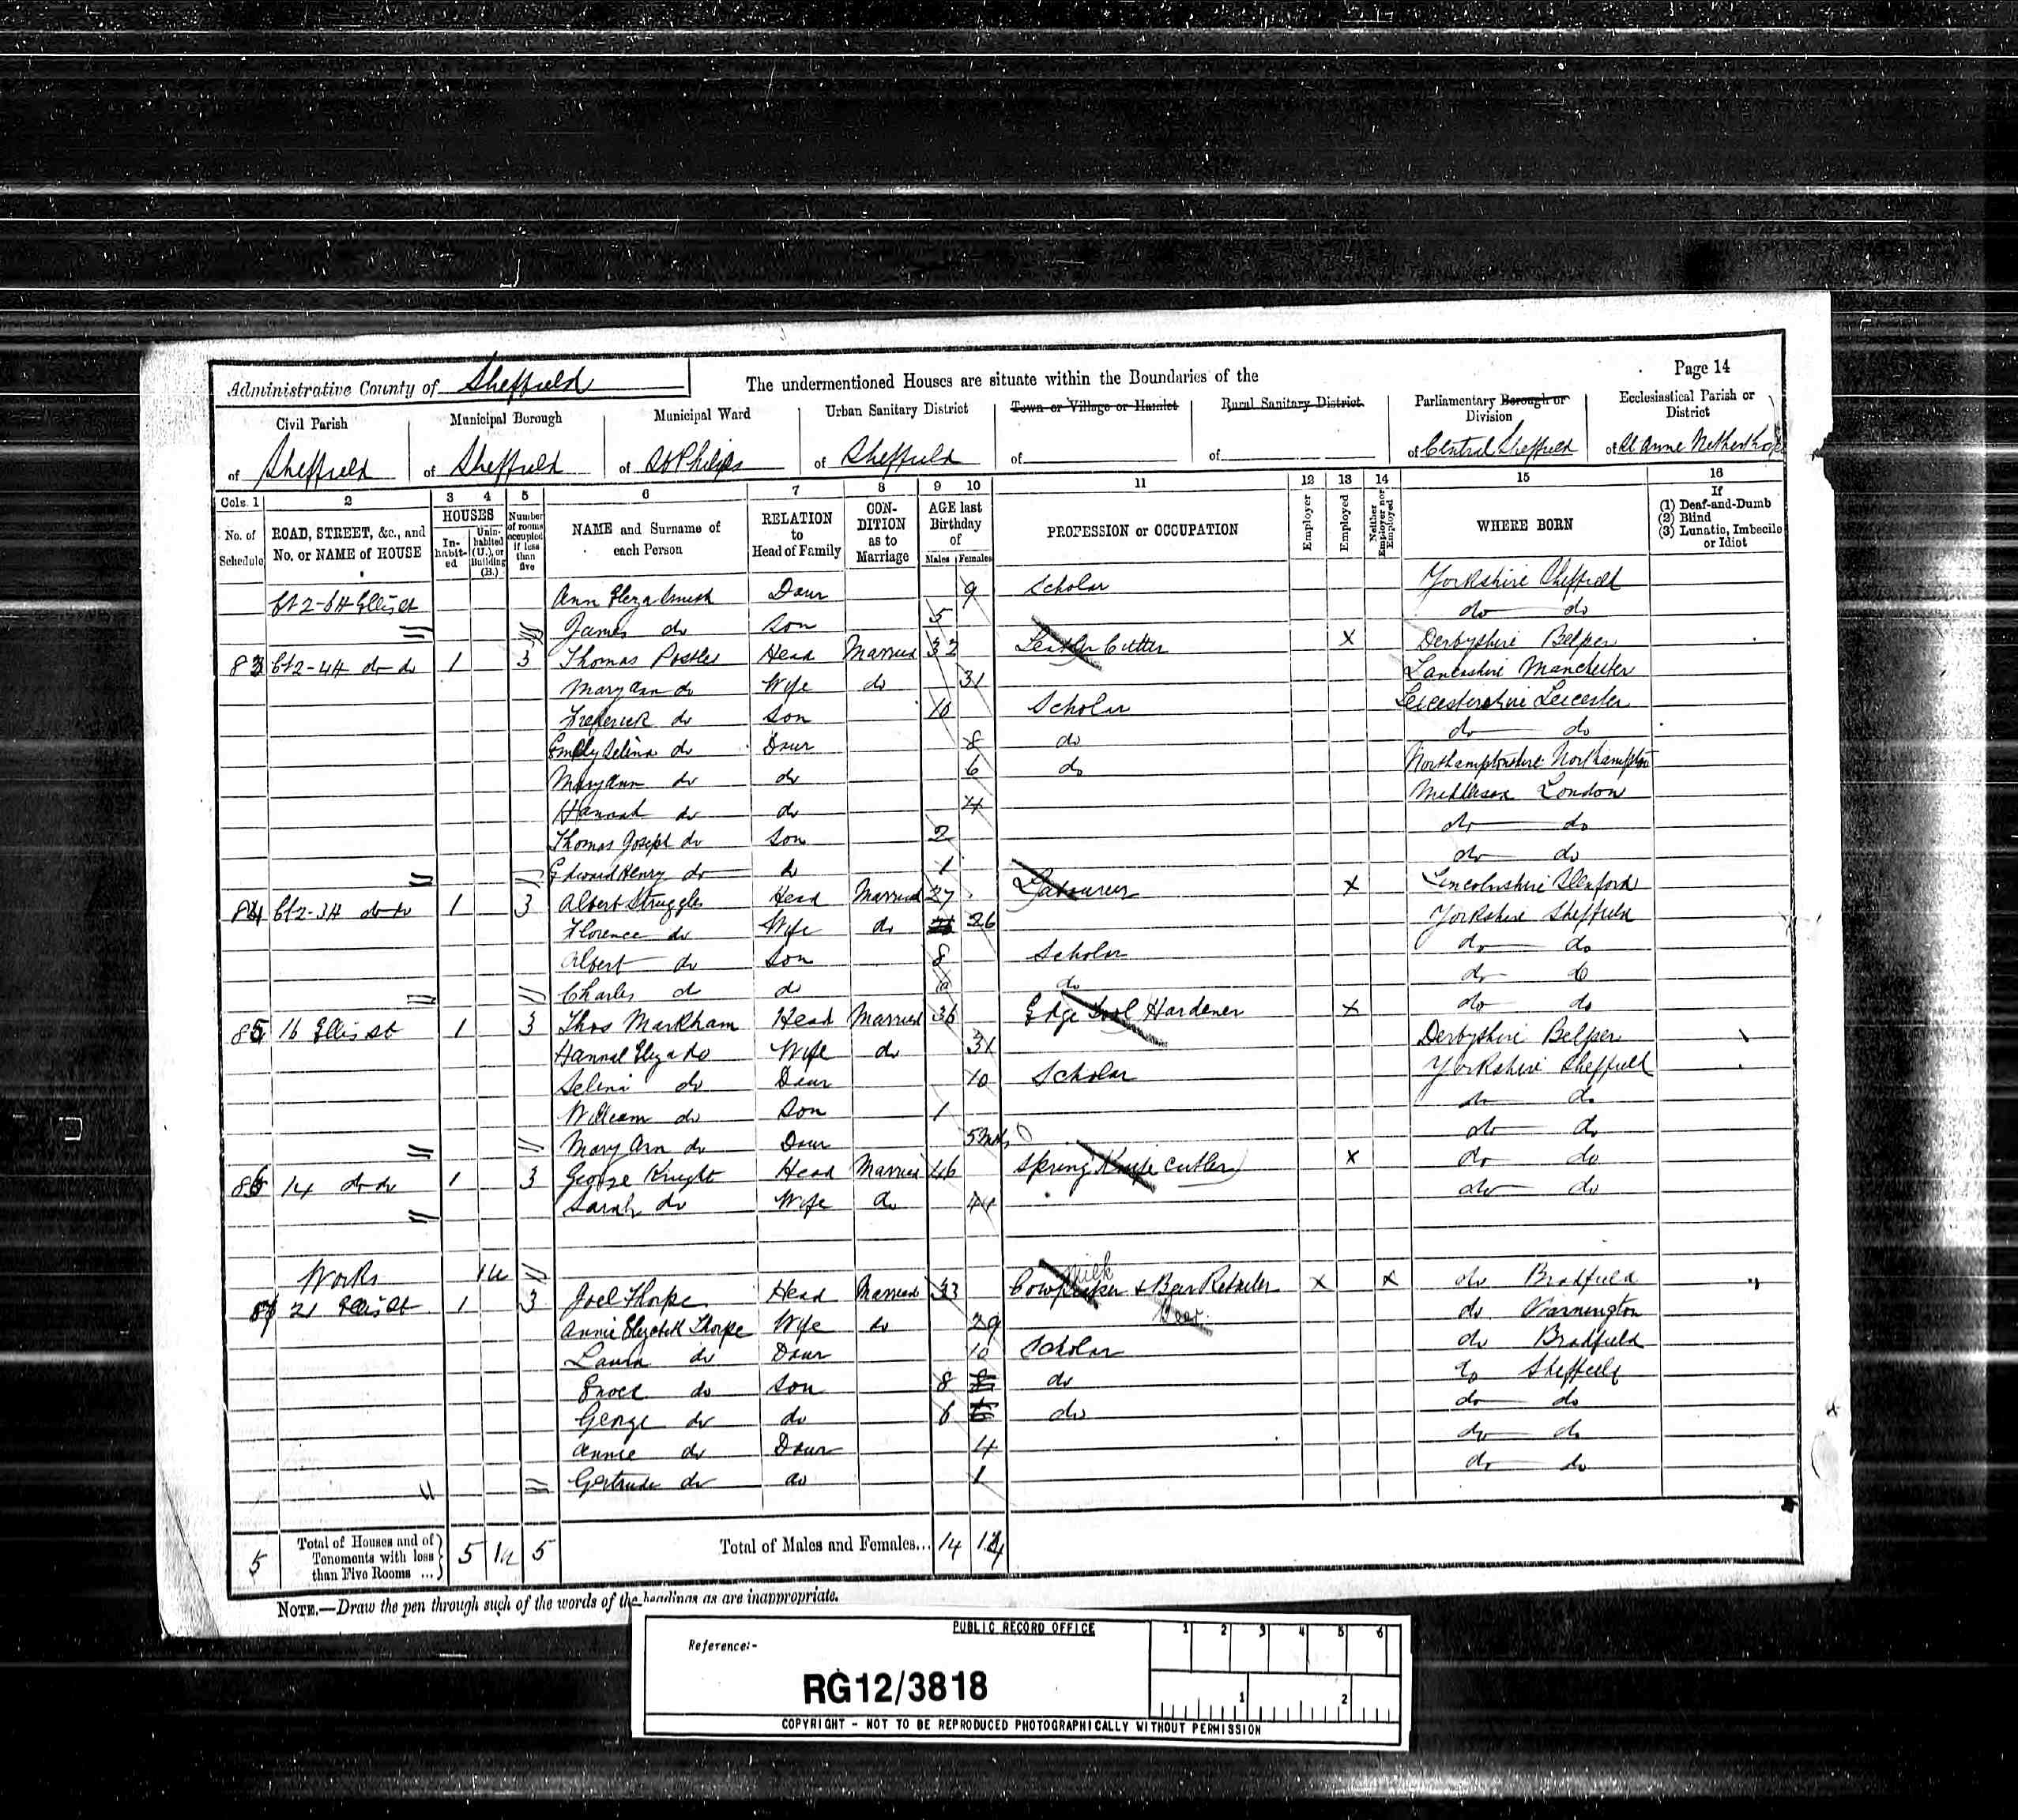 Page 14
Administrative County of Sheffield The undermentioned Houses are situate within the Boundaries of the
Civil Parish Municipal Borough Municipal Ward Urban Sanitary District Town or Village or Hamlet Rural Sanitary District Parliamentary Borough or Division Ecclesiastical Parish or District
of Sheffield of Sheffield of St Philips of Sheffield of of of Central Sheffield of St Anne Netherthorpe
Cols. 1 2 3 4 5 6 7 8 9 10 11 12 13 14 15 16
No. of Schedule ROAD, STREET, &c., and No. or NAME of HOUSE HOUSES Inhabited Uninhabited (U.), or Building (B.) Number of rooms occupied if less than five NAME and Surname of each Person RELATION to Head of Family CONDITION as to Marriage AGE last Birthday of Males Females PROFESSION or OCCUPATION Employer Employed Neither Employer nor Employed WHERE BORN If (1) Deaf-and-Dumb (2) Blind (3) Lunatic, Imbecile or Idiot
Ct 2-6H Ellis St Ann Eliza Daur 9 Scholar Yorkshire Sheffield
James do Son 5 do do
83 Ct 2-4H do do 1 3 Thomas Postles Head Married 32 Leather Cutter X Derbyshire Belper
Mary Ann do Wife do 31 Lancashire Manchester
Frederick do Son 10 Scholar Leicestershire Leicester
Emily Selina do Daur 8 do do do
Mary Ann do do 6 do Northamptonshire Northampton
Hannah do do 4 Middlesex London
Thomas Joseph do Son 2 do do
Edward Henry do do 1 do do
84 Ct 2-3H do do 1 3 Albert Struggles Head Married 27 Labourer X Lincolnshire Sleaford
Florence do Wife do 26 Yorkshire Sheffield
Albert do Son 8 Scholar do do
Charles do do do do do
85 16 Ellis St 1 3 Thos Markham Head Married 36 Edge Tool Hardener X do do
Hannah Eliza do Wife do 31 Derbyshire Belper
Selina do Daur 10 Scholar Yorkshire Sheffield
William do Son 1 do do
Mary Ann do Daur 5 mths do do
86 14 do do 1 3 George Knight Head Married 46 Spring Knife Cutler X do do
Sarah do Wife do 44 do do
Works 1 U
87 21 Ellis St 1 3 Joel Thorpe Head Married 33 Cowkeeper Milk & Beer Retailer Beer X X do Bradfield
Annie Elizabeth Thorpe Wife do 29 do
Laura do Daur 10 Scholar do Bradfield
Enoch do Son 8 do do Sheffield
George do do 6 do do do
Annie do Daur 4 do do
Gertrude do do 1 do do
5 Total of Houses and of Tenements with less than Five Rooms ... 5 1U 5 Total of Males and Females... 14 14
NOTE.—Draw the pen through such of the words of the headings as are inappropriate.
PUBLIC RECORD OFFICE
Reference:-
RG12/3818
1 2 3 4 5 6
1 2
COPYRIGHT - NOT TO BE REPRODUCED PHOTOGRAPHICALLY WITHOUT PERMISSION